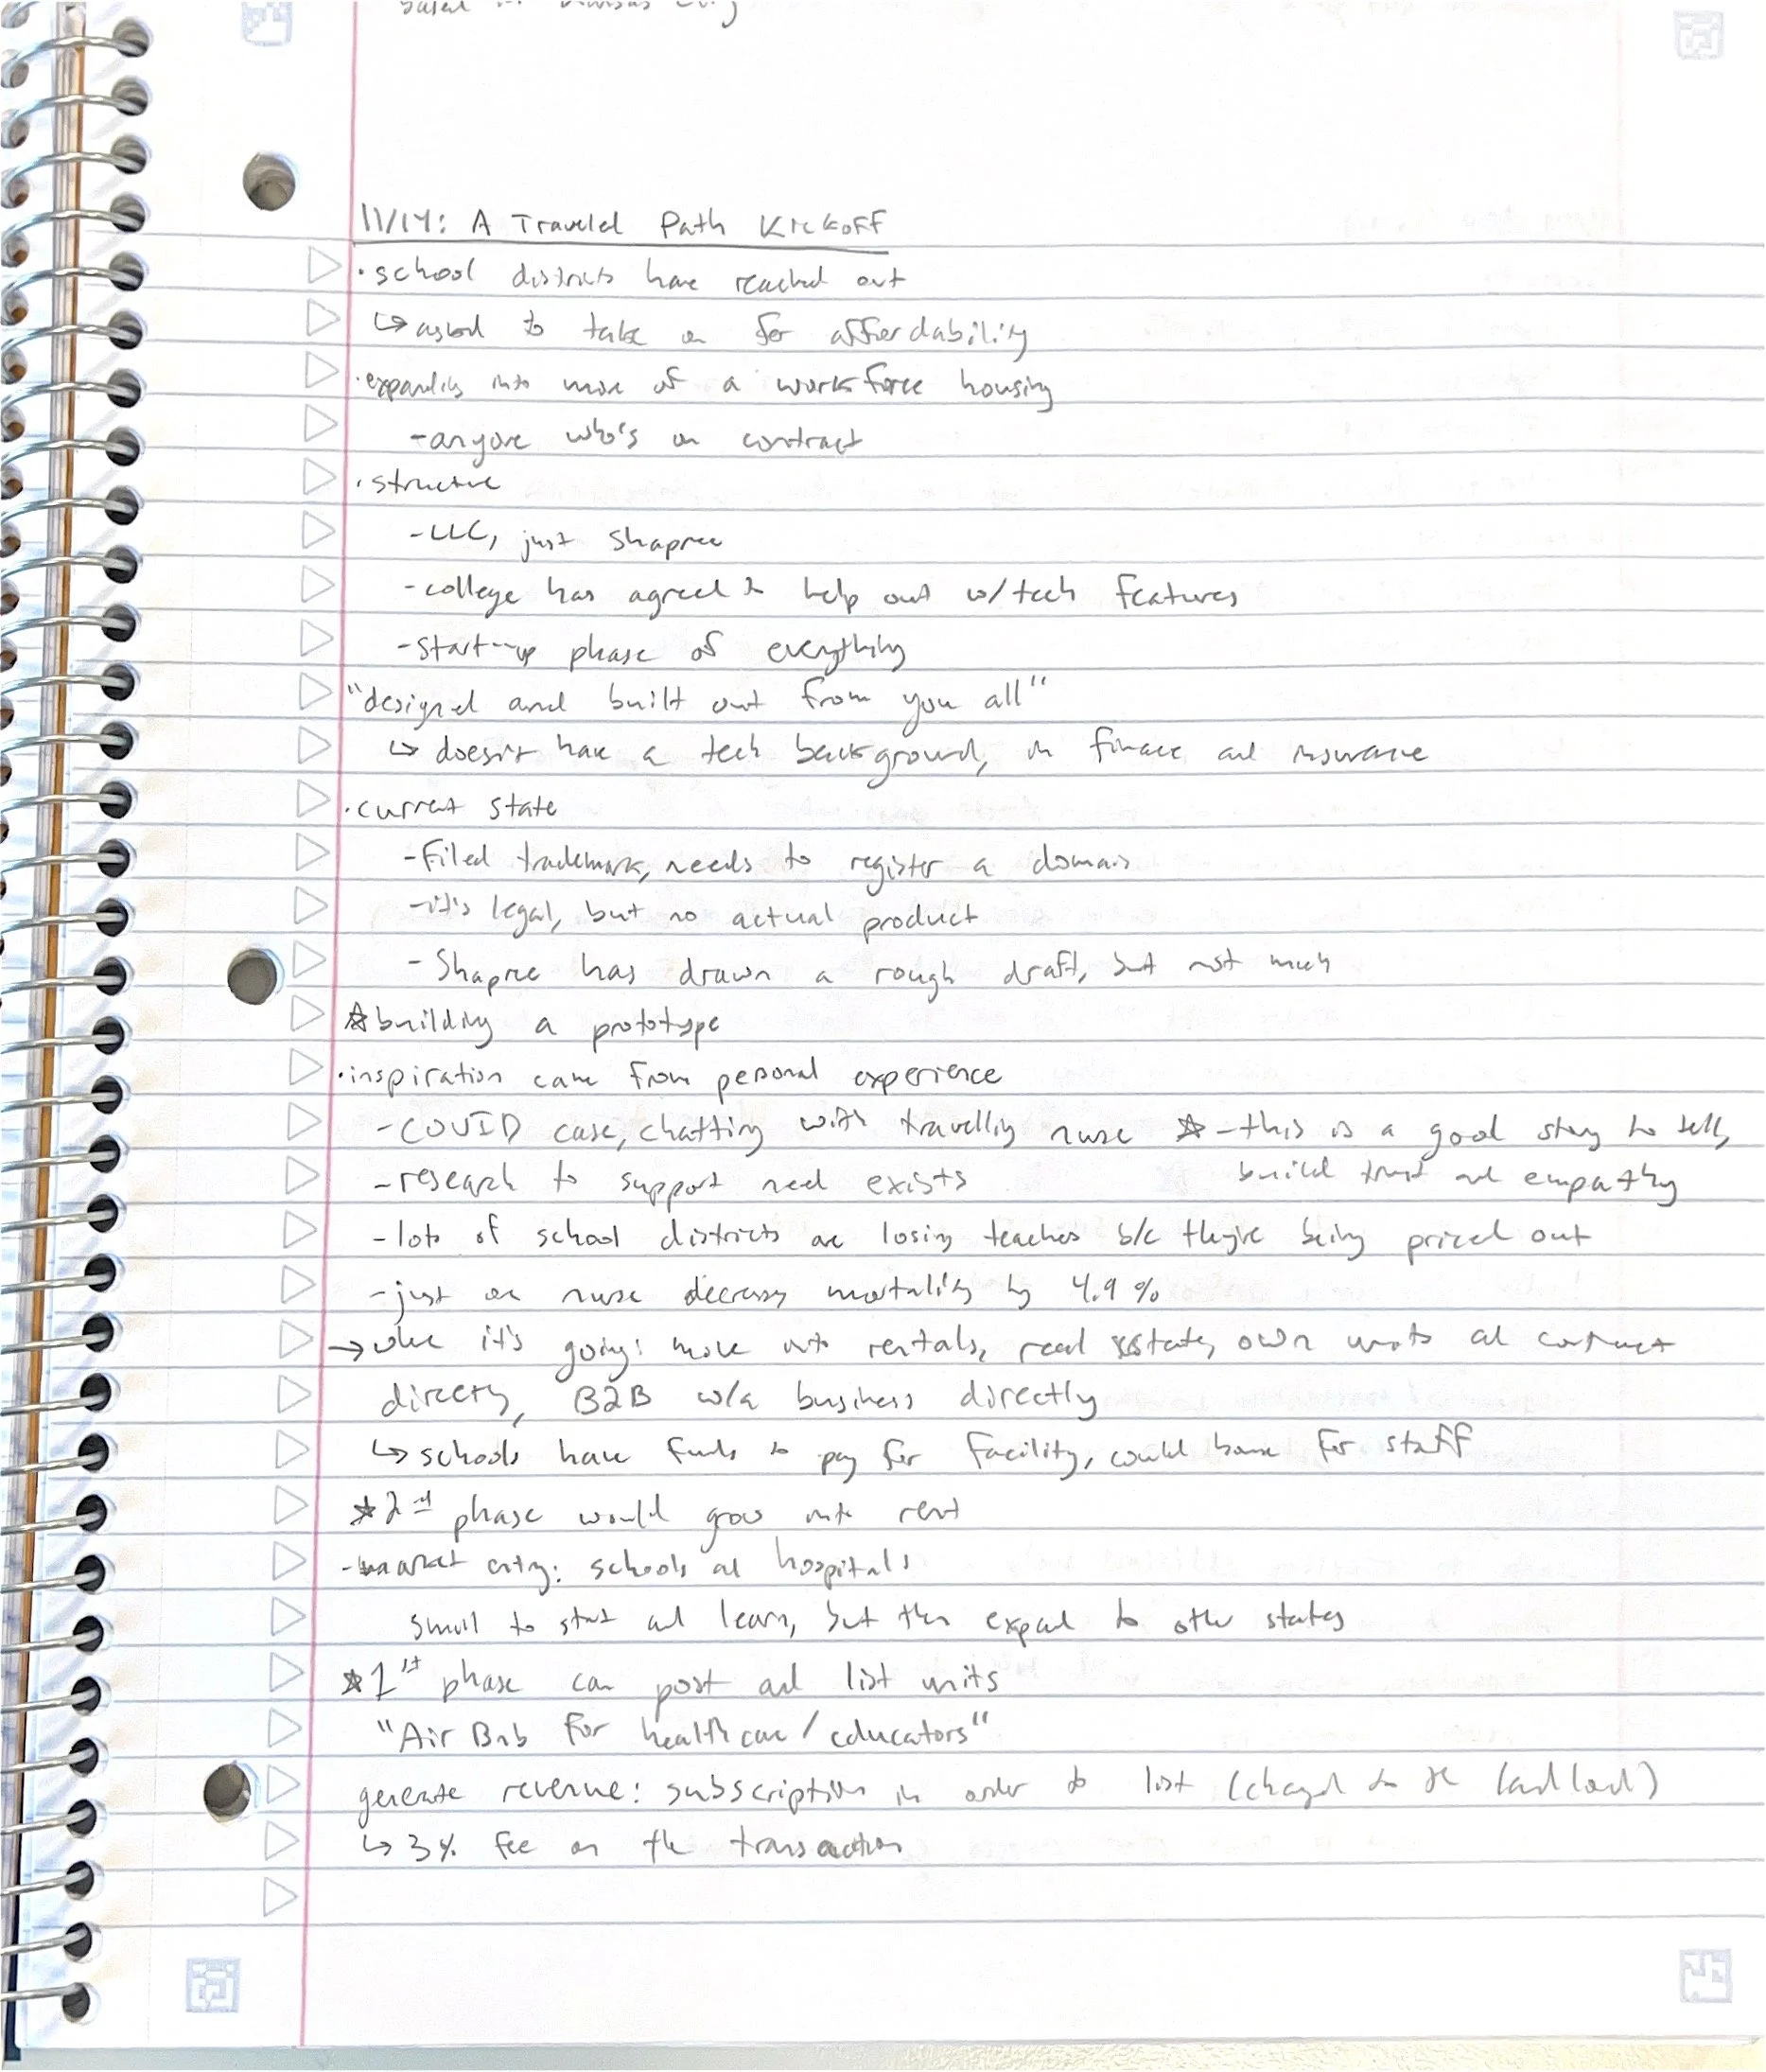 based in Kansas City
11/14: A Traveled Path Kickoff
· school districts have reached out
↳ asked to take on for affordability
· expanding into more of a workforce housing
- anyone who's on contract
· structure
- LLC, just Shapree
- college has agreed to help out w/ tech features
- start-up phase of everything
"designed and built out from you all"
↳ doesn't have a tech background, in finance and insurance
· current state
- Filed trademark, needs to register a domain
- it's legal, but no actual product
- Shapree has drawn a rough draft, but not much
☆ building a prototype
· inspiration came from personal experience
- COVID case, chatting with travelling nurse ☆ - this is a good story to tell,
build trust and empathy
- research to support need exists
- lots of school districts are losing teachers b/c they're being priced out
- just one nurse decreases mortality by 4.9%
→ where it's going: move into rentals, real estate, own units and contract
directly, B2B w/a business directly
↳ schools have funds to pay for facility, could house for staff
☆ 2nd phase would grow into rent
- market entry: schools and hospitals
small to start and learn, but then expand to other states
☆ 1st phase can post and list units
"Air Bnb for healthcare/educators"
generate revenue: subscription in order to list (charged to the landlord)
↳ 3% fee on the transaction